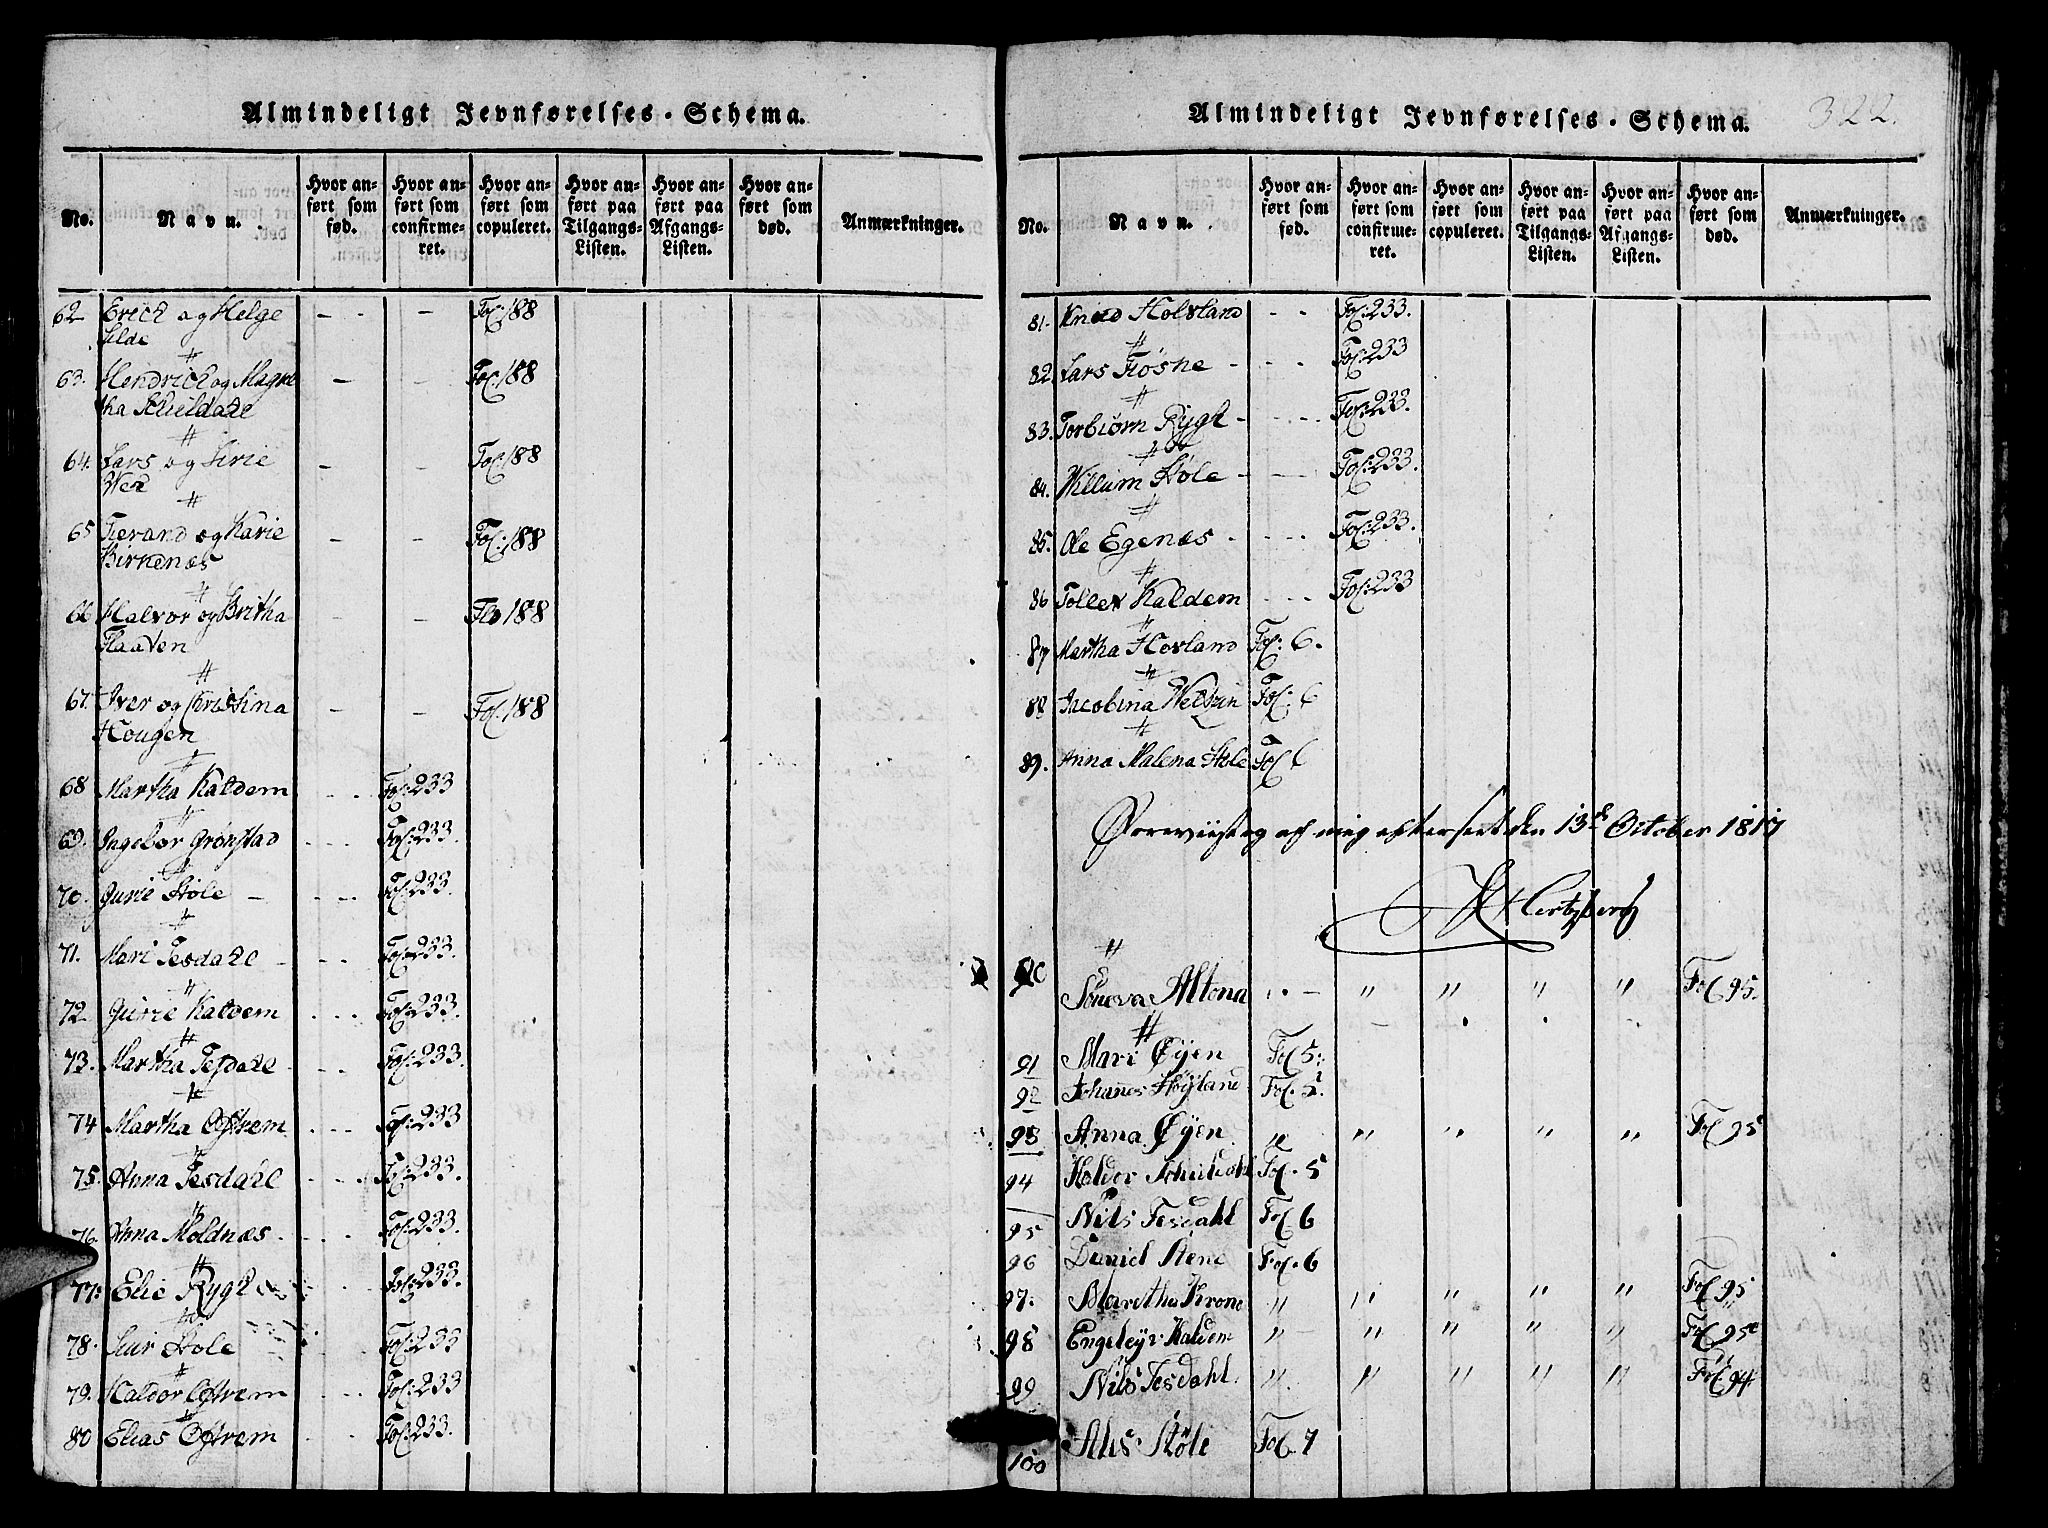 Almindeligt Jevnførelses-Schema.
No. Navn. Hvor anført som fød. Hvor anført som confirmeret. Hvor anført som copuleret. Hvor anført paa Tilgangs-Listen. Hvor anført paa Afgangs-Listen. Hvor anført som død. Anmærkninger.
62 Erich og Helge - - - Fol:188
Silde
63. Hendrich og Magre - - Fol:188
tha Schieldahl
64. Lars og Sirie - - Fol:188
65 og Karie - - Fol:188
Birkenæs
66 Halvor og Britha - - 188
Flaaten
67. Iver og Christina - - Fol.188
Hougen
68 Martha Kaldem - - - Fol:233
69. Ingebor Grønstad - - - Fol:233.
70. Gurie Høle - - - - Fol:233.
71. Mari Tesdahl - - - - Fol:233.
72 Gurie Kaldem - - - Fol:233.
73. Martha Tesdahl - - - Fol:233.
74 Martha Oftrem - - - Fol:233
75. Anna Tesdahl - - - Fol:233.
76. Anna Moldnæs - - - Fol:233.
77: Elie Rygh - - Fol:233.
78. Høle - - Fol:233
79. Haldor Oftrem - - - Fol:233
80 Elias Oftrem - - - Fol:233.
Almindeligt Jevnførelses-Schema.
322.
No. Navn. Hvor anført som fød. Hvor anført som confirmeret. Hvor anført som copuleret. Hvor anført paa Tilgangs-Listen. Hvor anført paa Afgangs-Listen. Hvor anført som død. Anmærkninger.
81. Knud Holvland - - Fol:233.
82. Lars Fiøsne - - - Fol:233
83. Torbiørn Rygh - - - - Fol:233.
84. Willum Høle - - - - Fol:233.
85. Ole Egenæs - - - - Fol:233.
86 Tollev Kaldem - - - Fol:233
87 Martha Hovland Fol: 6.
88 Jacobina Fol: 6
89. Anna Malena Høle Fol 6
af mig efterseet den 13de October 1817
Hertzberg
90 Altona - " " " " Fol 95.
91 Mari Øyen Fol 5.
92 Johannes Høyland Fol. 5.
93 Anna Øyen " " " " " Fol 95
94 Haldor Schieldahl Fol. 5
95 Nils Tesdahl Fol 6
96 Daniel Stene Fol. 6
97. Maretha Krone " " " " " Fol 95
98 Kaldem " " " " " Fol 95
99 Nils Tesdahl. " " " " " Fol 94.
100 Høle Fol. 7